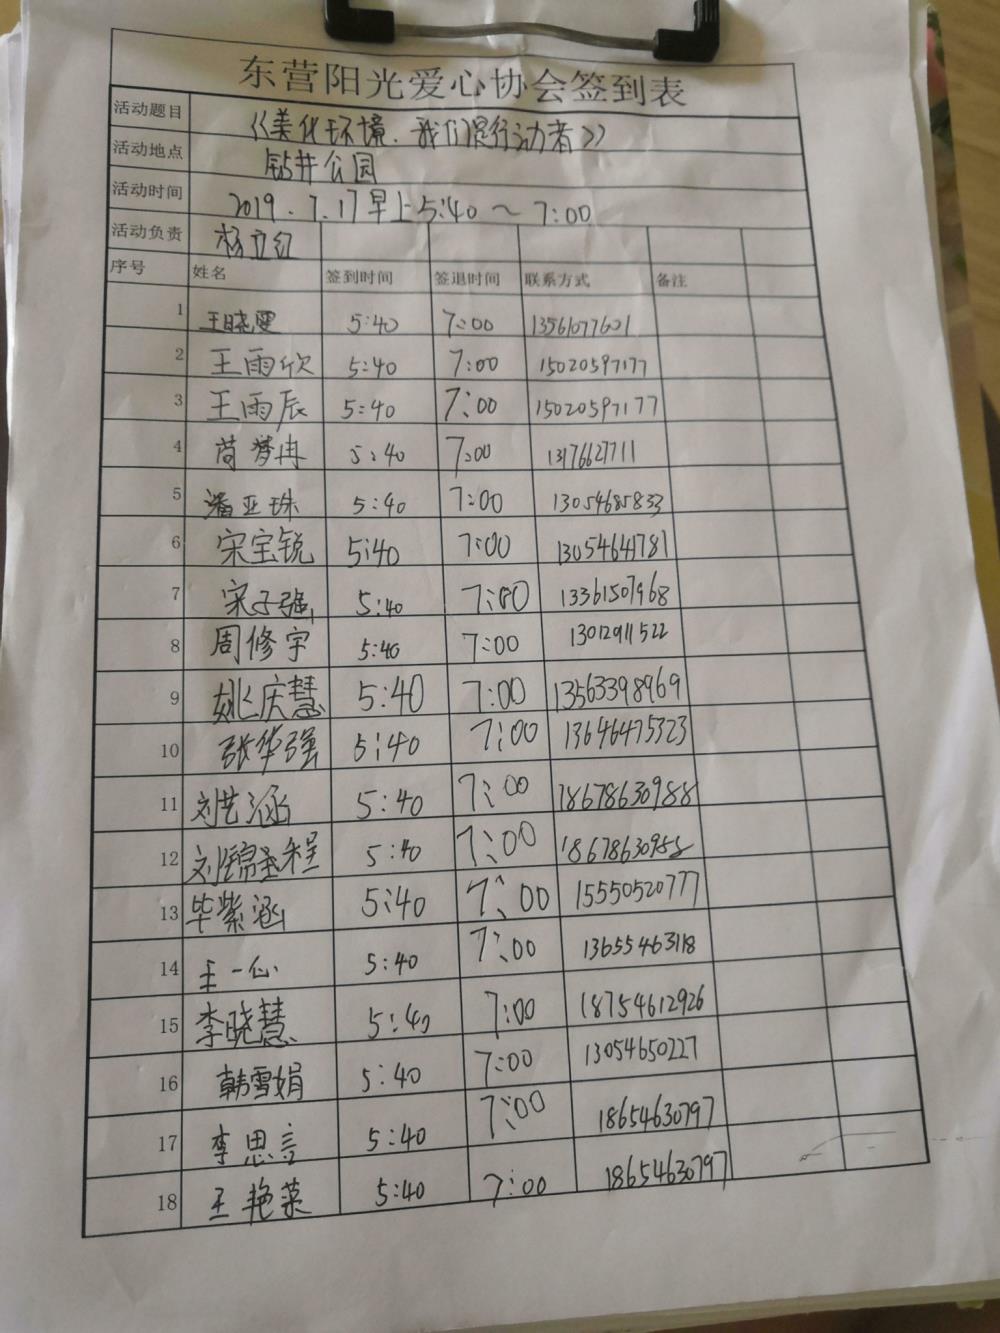 东营阳光爱心协会签到表
活动题目 《美化环境.我们是行动者》
活动地点 钻井公园
活动时间 2019.7.17早上5:40～7:00
活动负责 杨立红
序号 姓名 签到时间 签退时间 联系方式 备注
1 王晓雯 5:40 7:00 13561077601
2 王雨欣 5:40 7:00 15020597177
3 王雨辰 5:40 7:00 15020597177
4 苘梦冉 5:40 7:00 13176627711
5 潘亚珠 5:40 7:00 13054685833
6 宋宝锐 5:40 7:00 13054641781
7 宋子强 5:40 7:00 13361507968
8 周修宇 5:40 7:00 13012911522
9 姚庆慧 5:40 7:00 13563398969
10 张华强 5:40 7:00 13646475323
11 刘艺涵 5:40 7:00 18678630988
12 刘锦圣程 5:40 7:00
13 毕紫涵 5:40 7:00 15550520777
14 王一心 5:40 7:00 13655463118
15 李晓慧 5:40 7:00 18754612926
16 韩雪娟 5:40 7:00 13054650227
17 李思言 5:40 7:00 18654630797
18 王艳菜 5:40 7:00 18654630797